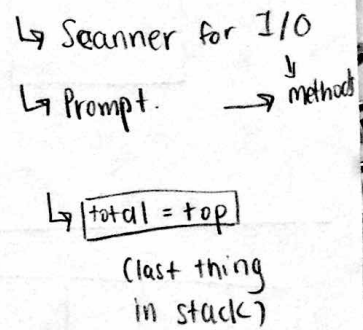 ↳ Scanner for I/O
↳ Prompt. → methods
↳ total = top
(last thing
in stack)